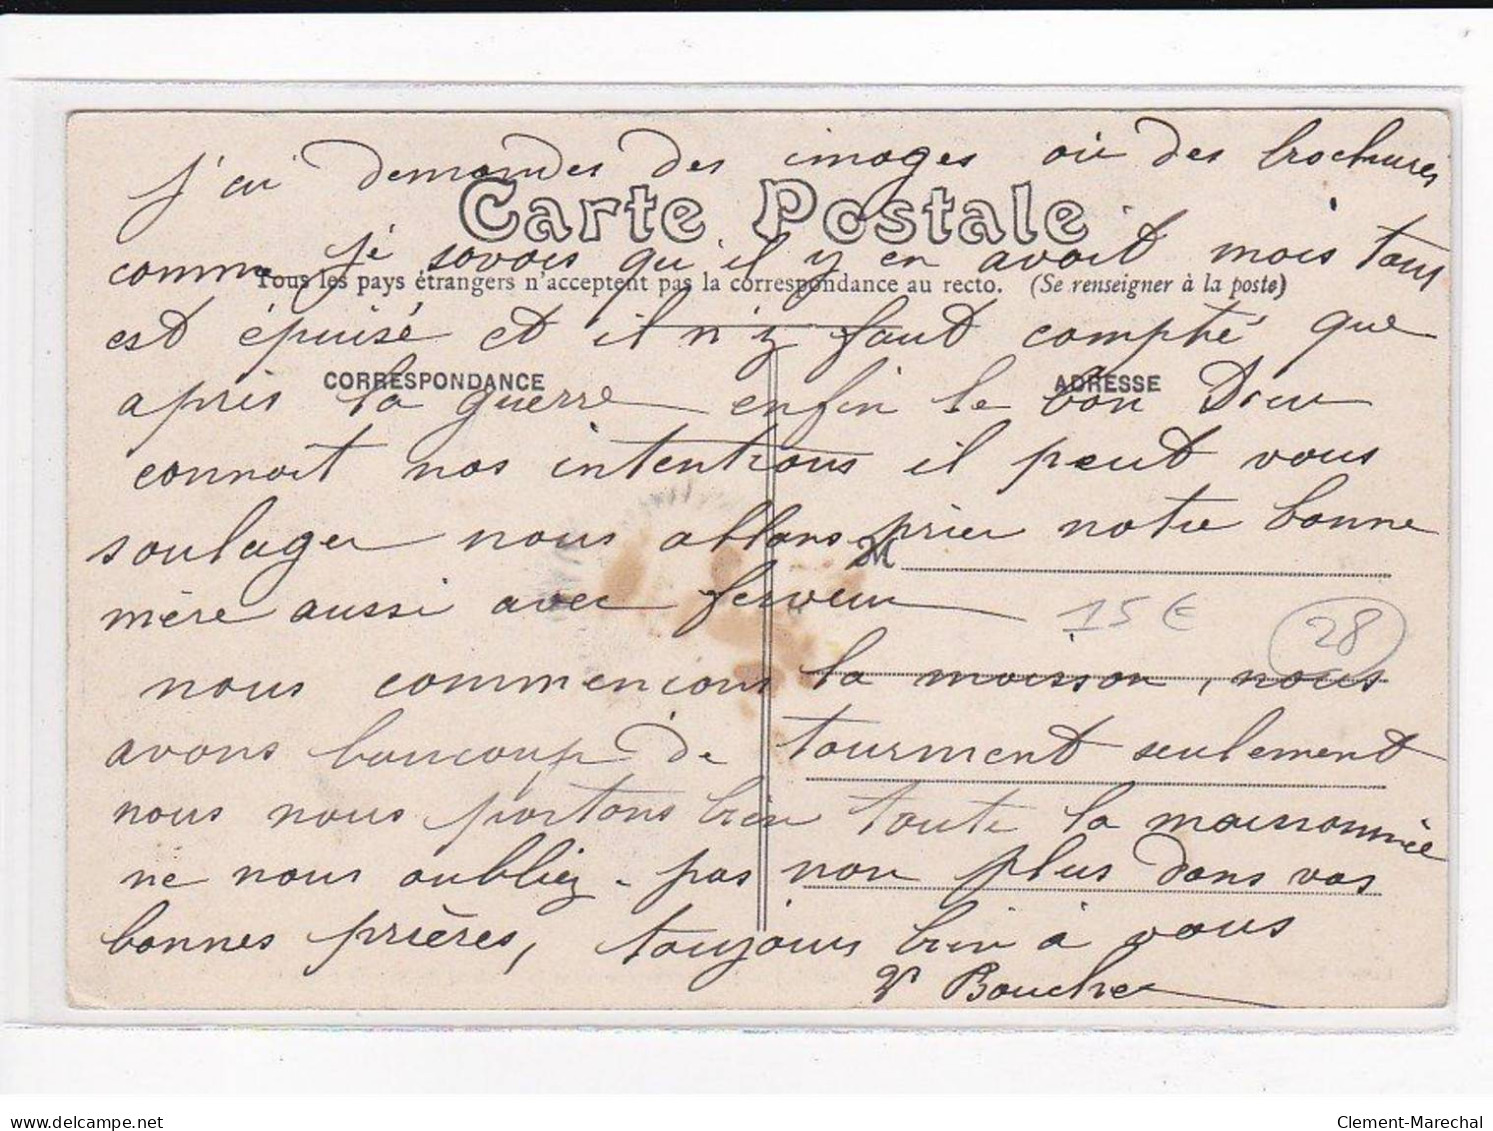 J'ai demandes des images où des brochures
Carte Postale
comme je savais qu'il y en avait mais tout
Tous les pays étrangers n'acceptent pas la correspondance au recto. (Se renseigner à la poste)
est épuisé et il n'y faut compté que
CORRESPONDANCE ADRESSE
après la guerre enfin le bon Dieu
connait nos intentions il peut vous
soulager nous allons prier notre bonne
M
mère aussi avec ferveur
15 €
28
nous commençons la moisson, nous
avons baucoup de tourment seulement
nous nous portons bien toute la maisonnée
ne nous oubliez-pas non plus dans vos
bonnes prières, toujours bien à vous
Vve Boucher
delcampe.net
Clement-Marechal